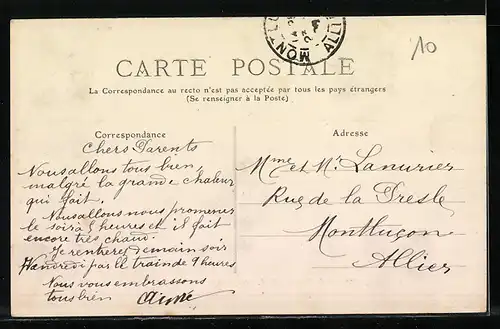 MONTLUÇON
ALLIER
10
CARTE POSTALE
La Correspondance au recto n'est pas acceptée par tous les pays étrangers
(Se renseigner à la Poste)
Correspondance
Chers Parents
Nous allons tous bien,
malgré la grande chaleur
qui fait.
Nous allons nous promener
le soir à 5 heures et il fait
encore très chaud.
Je rentrerez demain soir
Vendredi par le train de 9 heures
Nous vous embrassons
tous bien Aimé
Adresse
Mme et Mr Lanurier
Rue de la Presle
Montluçon
Allier